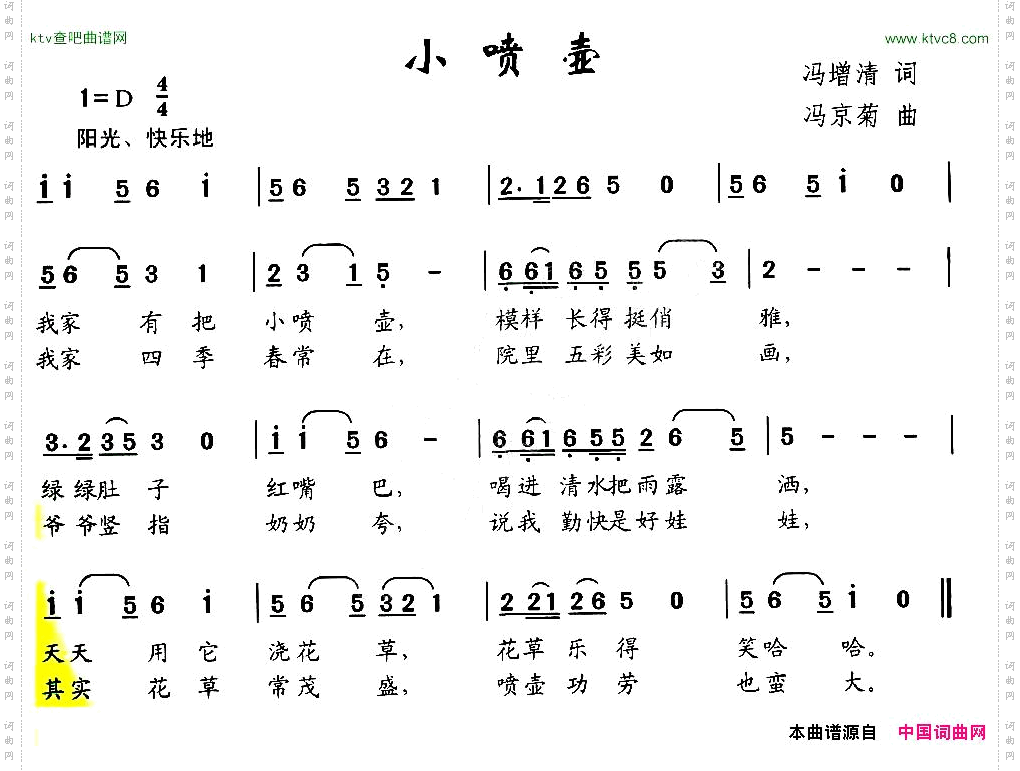 ktv查吧曲谱网
www.ktvc8.com
小喷壶
冯增清 词
1=D 4/4
冯京菊 曲
阳光、快乐地
i i 5 6 i | 5 6 5 3 2 1 | 2. 1 2 6 5 0 | 5 6 5 i 0 |
5 6 5 3 1 | 2 3 1 5 - | 6 6 1 6 5 5 5 3 | 2 - - - |
我家 有 把 小喷 壶, 模样 长得 挺俏 雅,
我家 四 季 春常 在, 院里 五彩 美如 画,
3. 2 3 5 3 0 | i i 5 6 - | 6 6 1 6 5 5 2 6 5 | 5 - - - |
绿 绿肚 子 红嘴 巴, 喝进 清水把雨露 洒,
爷 爷竖 指 奶奶 夸, 说我 勤快是好娃 娃,
i i 5 6 i | 5 6 5 3 2 1 | 2 2 1 2 6 5 0 | 5 6 5 i 0 ‖
天天 用 它 浇花 草, 花草 乐 得 笑哈 哈。
其实 花 草 常茂 盛, 喷壶 功 劳 也蛮 大。
本曲谱源自 中国词曲网